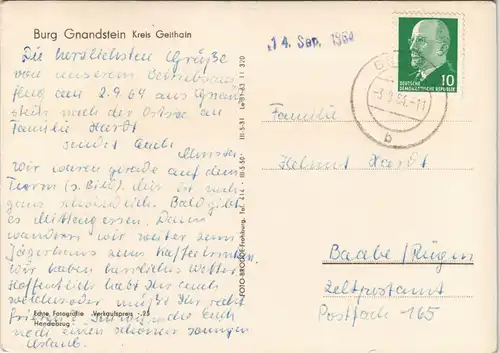 Burg Gnandstein Kreis Geithain
Die herzlichsten Grüße
von unserem Betriebsaus-
flug am 2.9.64 aus Gnand-
stein nach der Ostsee an
Familie Hardt
sendet Euch
Wir waren gerade auf dem
Turm (s. Bild), hier ist noch
ganz schön. Bald gibt
es Mittagessen. Dann
wandern wir weiter zum
Jägerhaus zum Kaffeetrinken.
Wir haben herrliches Wetter.
Hoffentlich habt Ihr auch
welches oder müßt Ihr sehr
frieren? Euch
noch einen schönen sonnigen
Urlaub.
Echte Fotografie Verkaufspreis -,25
Handabzug
FOTO-BRÜCK-Frohburg, Tel. 414 - III-5-50 III-5-31 Le 81-63 11 320
14. Sep. 1964
-3.9.64.-11
b
DEUTSCHE
DEMOKRATISCHE REPUBLIK
10
Familie
Helmut Hardt
Baabe/Rügen
Zeltpostamt
Postfach 165